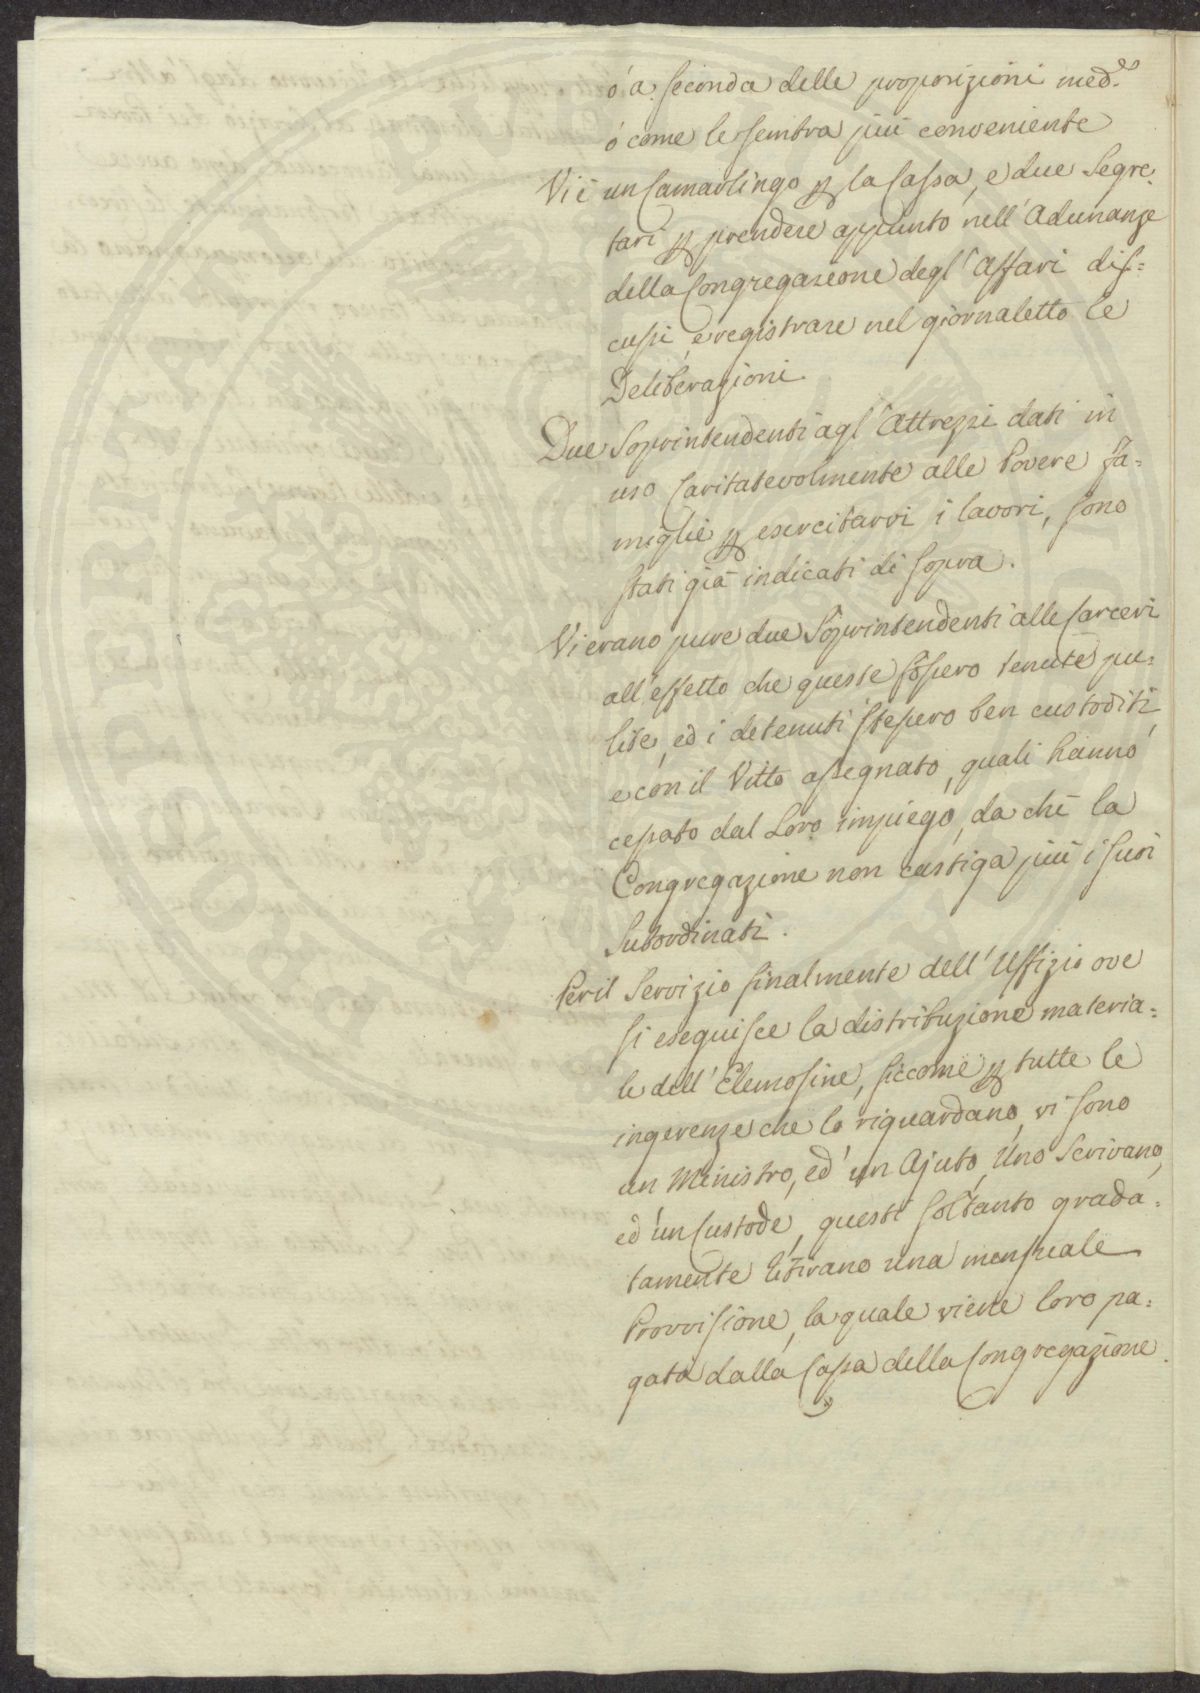 ó a seconda delle proporizioni med.e
ó come le sembra più conveniente
Vi è un Camarlingo p la Cassa, e due Segre:
tari p prendere appunto nell' Adunanze
della Congregazione degl' Affari dis=
cussi, e registrare nel giornaletto le
Deliberazioni.
Due Soprintendenti agl' Attrezzi dati in
uso Caritatevolmente alle Povere fa=
miglie p esercitarvi i lavori, sono
stati già indicati di sopra.
Vi erano pure due Soprintendenti alle Carceri
all'effetto che queste fossero tenute pu=
lite, ed i detenuti stessero ben custoditi,
e con il Vitto assegnato, quali hanno
cessato dal Loro impiego, da che la
Congregazione non castiga più i suoi
Subordinati.
Per il Servizio finalmente dell' Uffizio ove
si eseguisce la distribuzione materia=
le dell' Elemosine, siccome p tutte le
ingerenze che lo riguardano, vi sono
un Ministro, ed' un Ajuto, Uno Scrivano,
ed un Custode, questi soltanto grada=
tamente ritirano una mensuale
Provvisione, la quale viene loro pa=
gata dalla Cassa della Congregazione.